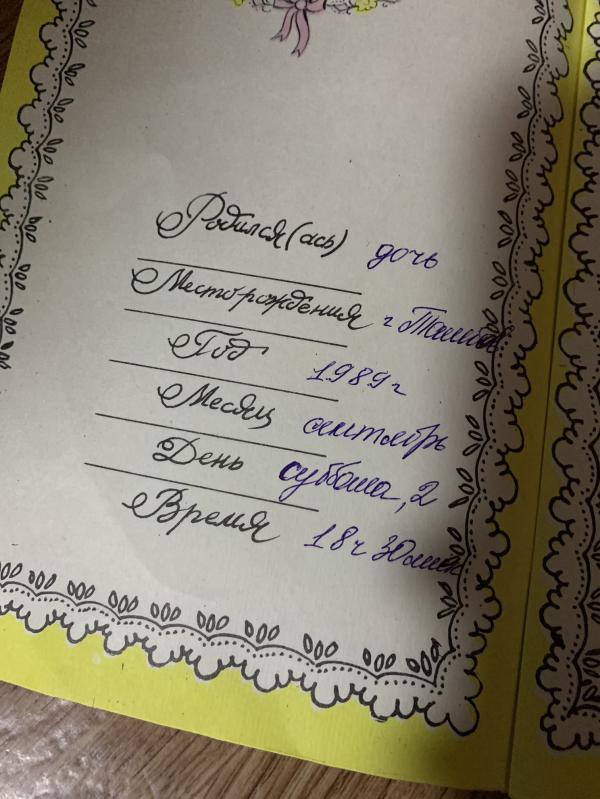 Родился(ась) дочь
Место рождения г Тамбов
Год 1989 г
Месяц сентябрь
День суббота, 2
Время 18 ч 30 мин